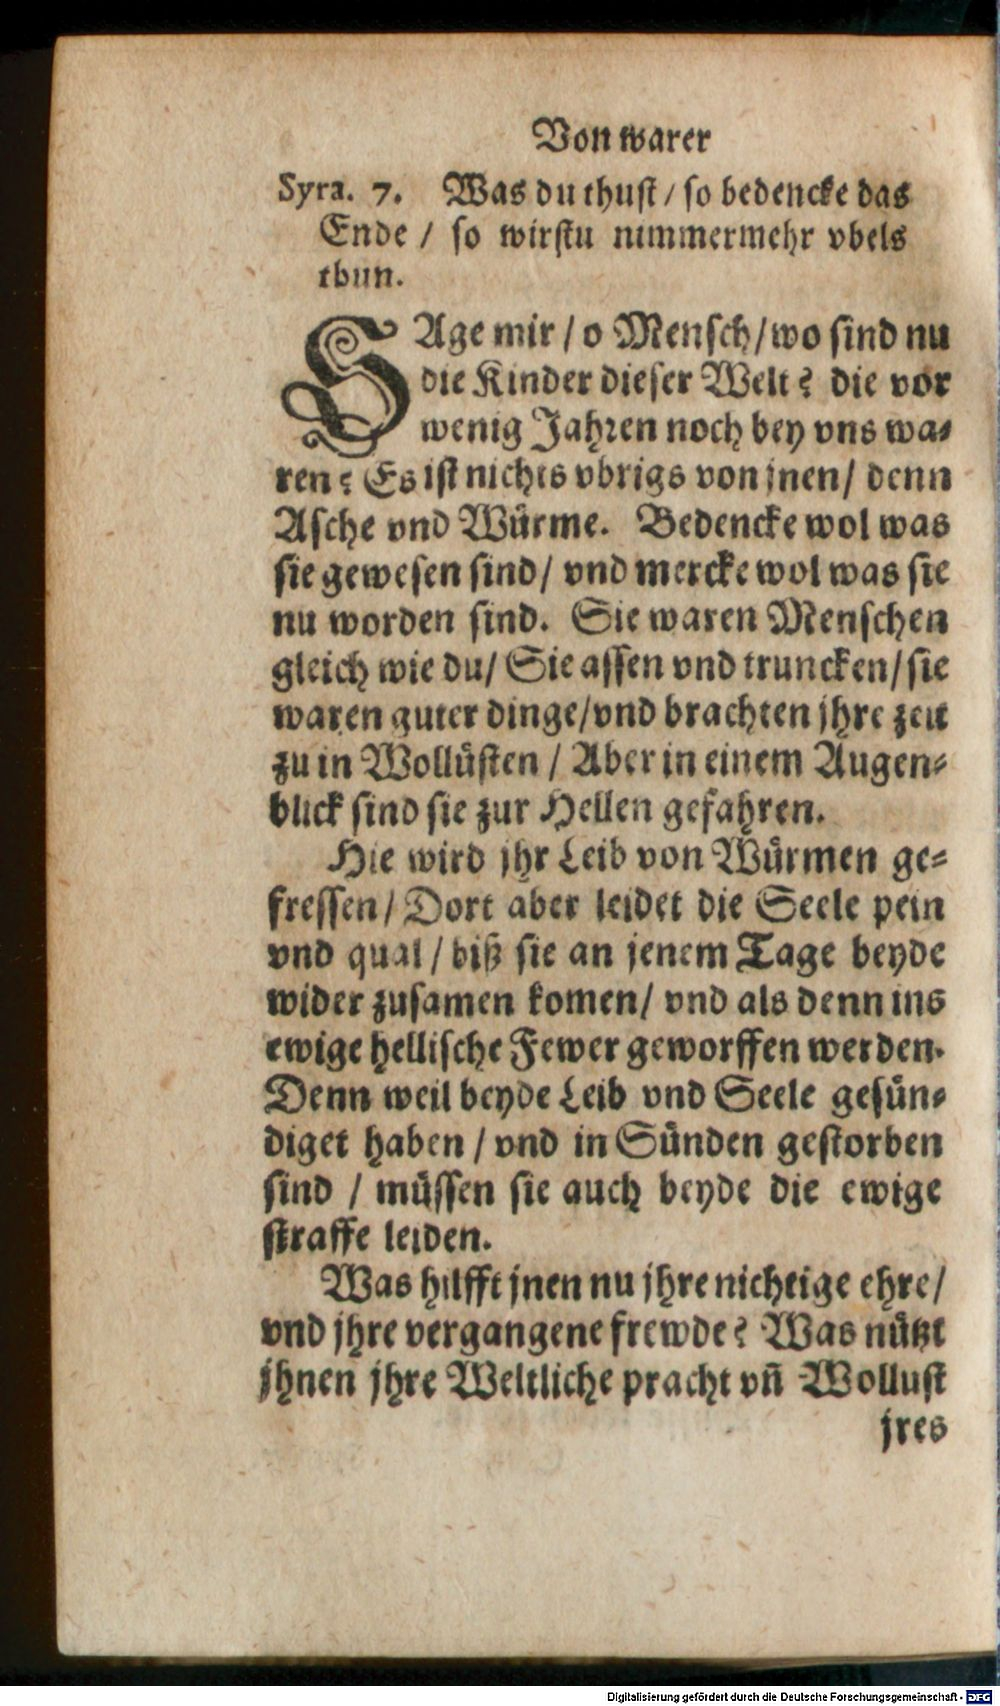 Von warer
Syra. 7. Was du thust / so bedencke das
Ende / so wirstu nimmermehr vbels
thun.
SAge mir / o Mensch / wo sind nu
die Kinder dieser Welt? die vor
wenig Jahren noch bey vns wa-
ren? Es ist nichts vbrigs von jnen / denn
Asche vnd Würme. Bedencke wol was
sie gewesen sind / vnd mercke wol was sie
nu worden sind. Sie waren Menschen
gleich wie du / Sie assen vnd truncken / sie
waren guter dinge / vnd brachten jhre zeit
zu in Wollüsten / Aber in einem Augen-
blick sind sie zur Hellen gefahren.
Hie wird jhr Leib von Würmen ge-
fressen / Dort aber leidet die Seele pein
vnd qual / biß sie an jenem Tage beyde
wider zusamen komen / vnd als denn ins
ewige hellische Fewer geworffen werden.
Denn weil beyde Leib vnd Seele gesün-
diget haben / vnd in Sünden gestorben
sind / müssen sie auch beyde die ewige
straffe leiden.
Was hilfft jnen nu jhre nichtige ehre /
vnd jhre vergangene frewde? Was nützt
jhnen jhre Weltliche pracht vñ Wollust
jres
Digitalisierung gefördert durch die Deutsche Forschungsgemeinschaft - DFG